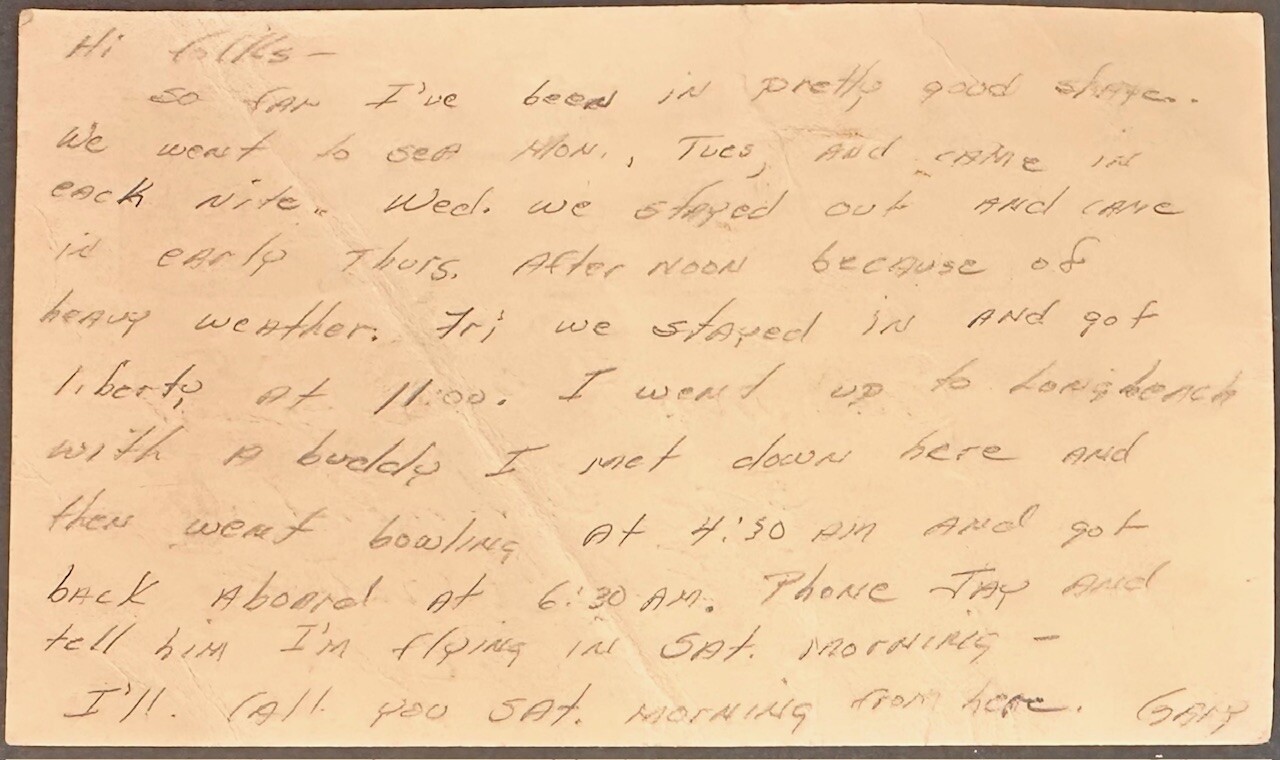 Hi folks -
So far I've been in pretty good shape.
We went to sea Mon., Tues, and came in
each nite. Wed. we stayed out and came
in early Thurs. After noon because of
heavy weather. Fri we stayed in and got
liberty at 11:00. I went up to Longbeach
with a buddy I met down here and
then went bowling at 4:30 AM and got
back aboard at 6:30 AM. Phone Jay and
tell him I'm flying in Sat. morning -
I'll call you Sat. morning from here. Gary